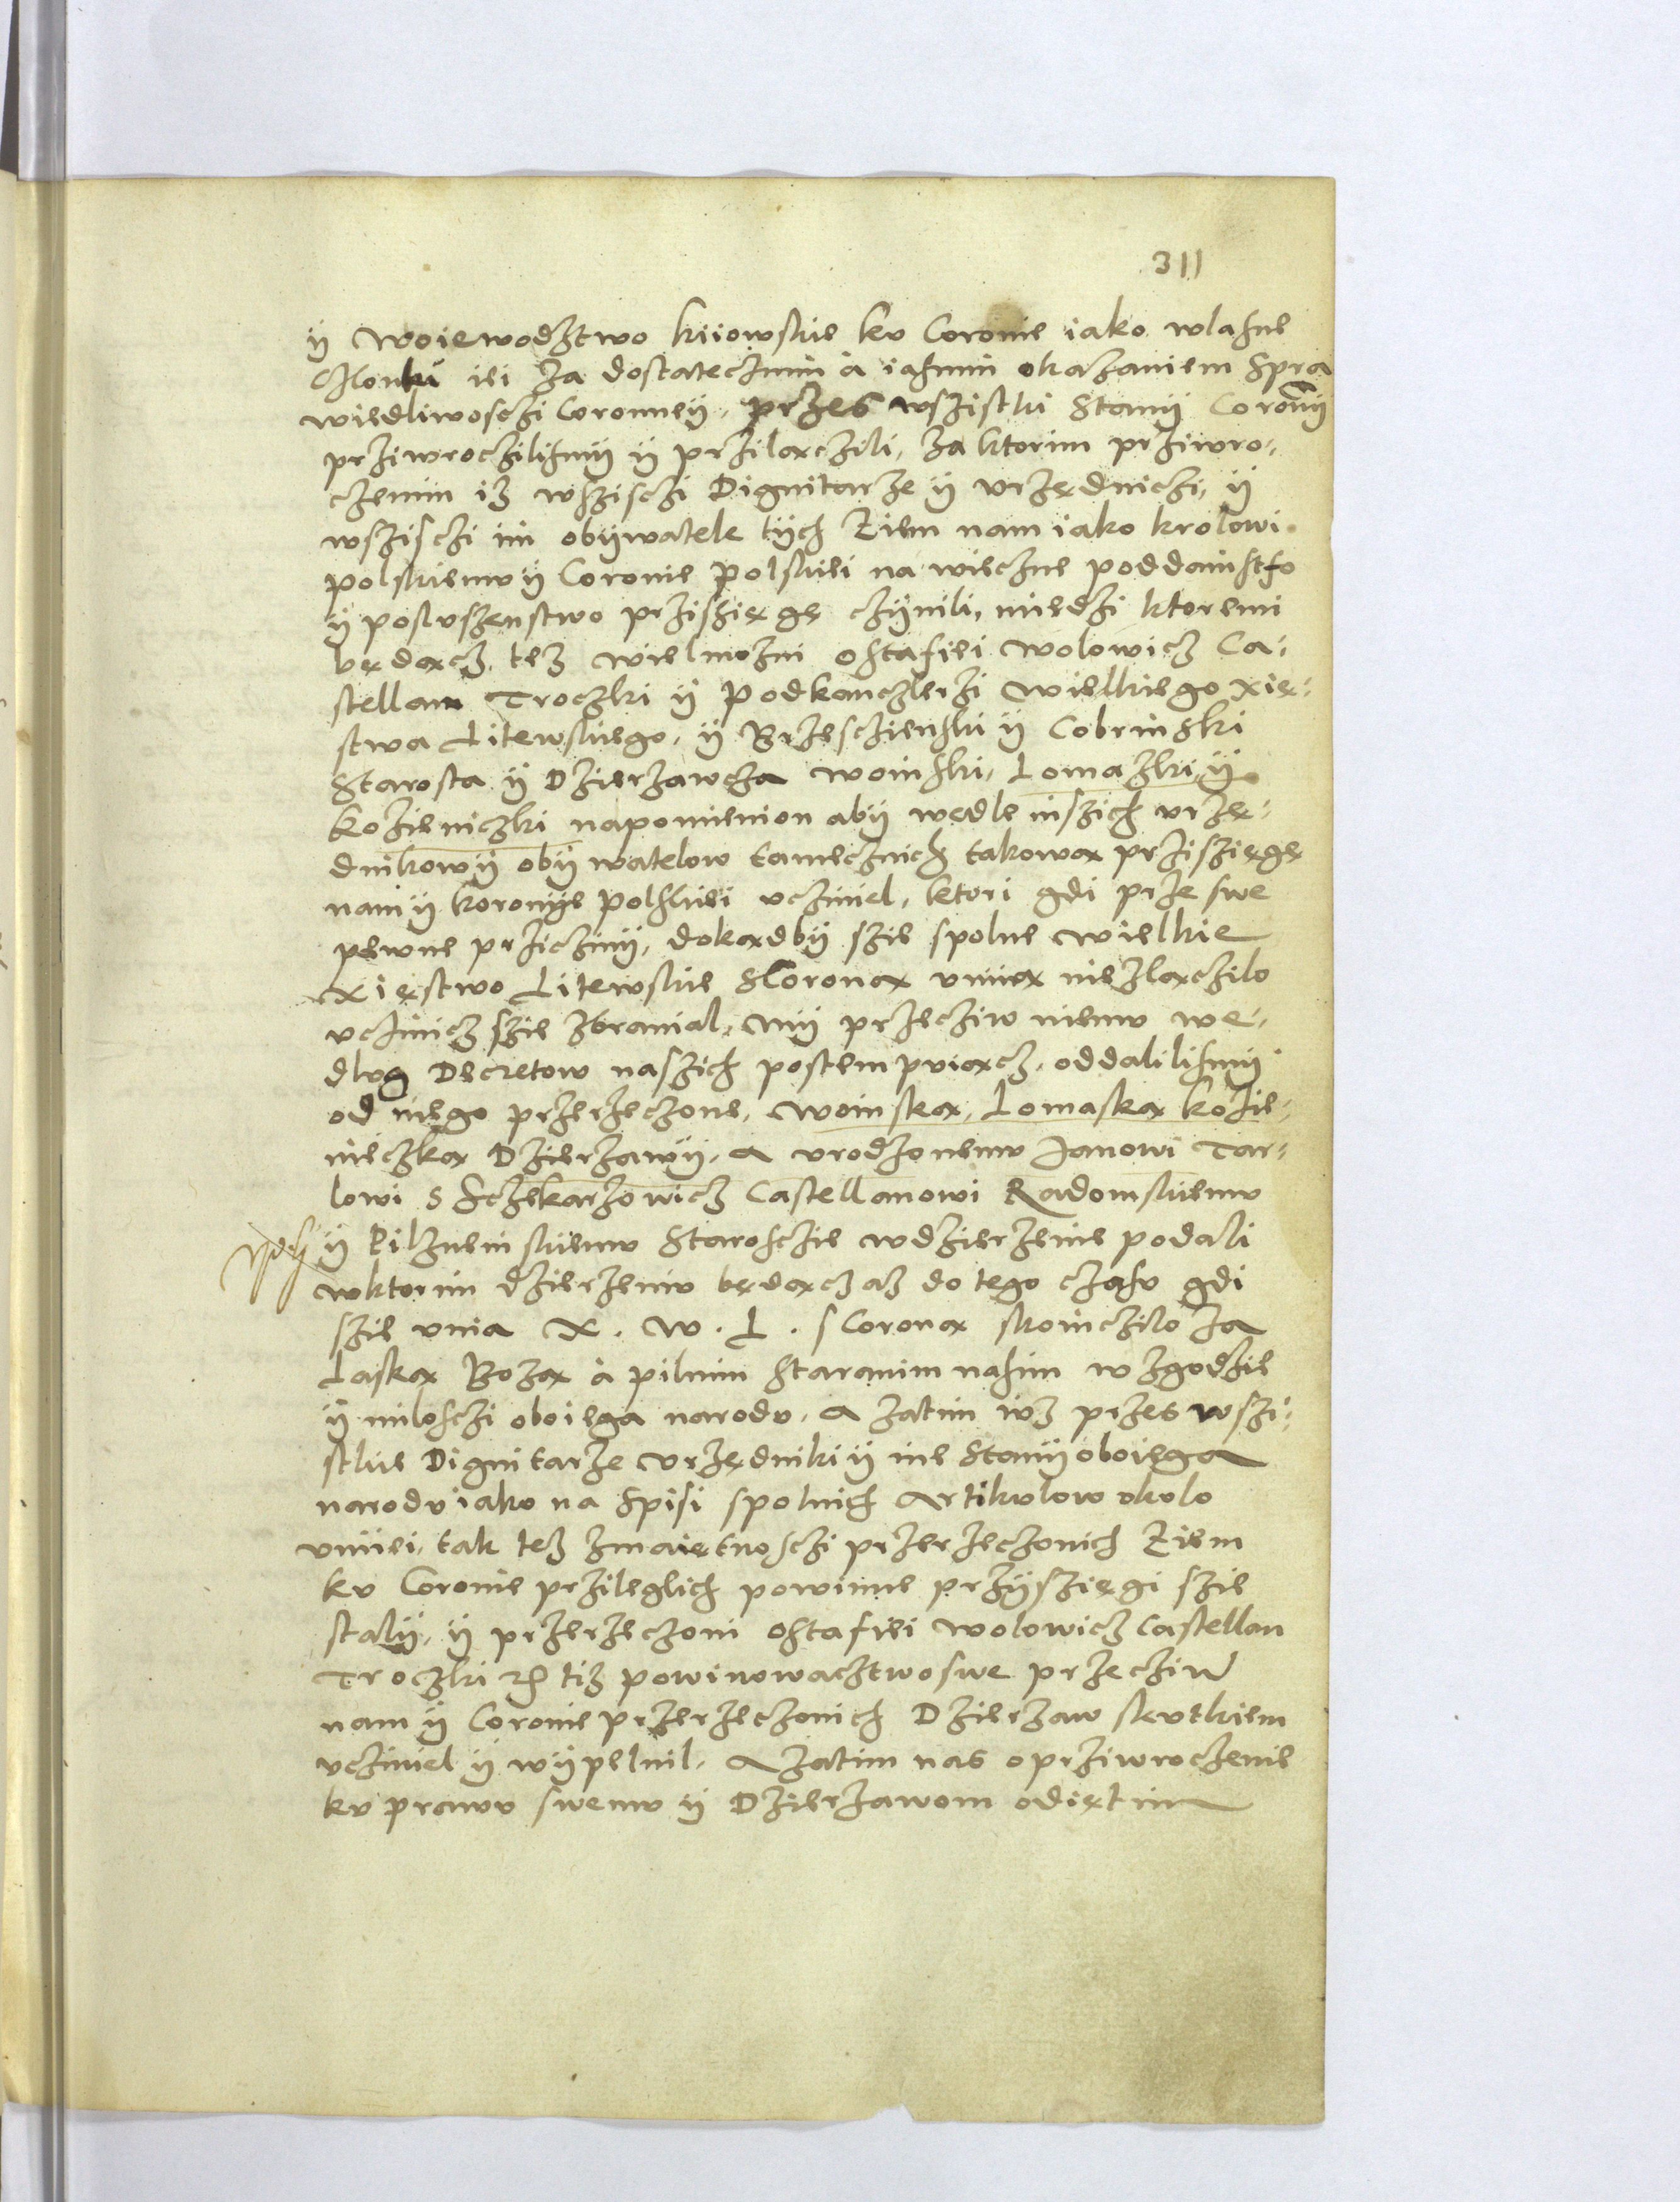 311
ÿ woiewodztwo kiiowskie ku Coronie iako wlasne
Czlonki iei za dostatecznim à iasnim okazaniem Spra
wiedliwosczi Coronneÿ, przes wszistki Stanÿ Coronÿ
prziwroczilismÿ ÿ przilaxczili, za ktorim prziwro-
czenim iz wszisczi Dignitarze ÿ urzędniczi, ÿ
wszisczi ini obÿwatele tÿch Ziem nam iako krolowi
polskiemu ÿ Coronie polskiei na wieczne poddainstfo
ÿ posluszenstwo przisięgę czÿnili, miedzi ktoremi
będaxcz tez wielmozni Ostafiei wolowicz Ca-
stellan Troczki ÿ Podkanczlerzi wielkiego xię-
stwa Litewskiego, ÿ Brzesczienski ÿ Cobrinski
Starosta ÿ Dzierzawcza woinski, Lomazki, ÿ
kozieniczki napomienion abÿ wedle inszich urzę-
dnikow ÿ obÿwatelow tamecznich takowax przisięgę
nam ÿ koronÿe polskiei ucziniel, ktori gdi prze swe
pewne prziczinÿ, dokaxdbÿ szie spolne wielkie
xięstwo Litewskie sCoronax uniiax niezlaxczilo
uczinicz szie zbranial, mÿ przecziw niemu we-
dlug Decretow naszich postempuiaxcz, oddalilismÿ
od niego przerzeczone, woinskax, Lomaskax kozie-
nieczkax Dzierzawÿ, a urodzonemu Janowi Tar-
lowi s Sczekarzowicz Castellanowi Radomskiemu
ÿ Pilznenskiemu Starosczie wdzierzenie podali
wktorim dzierzeniu będaxcz az do tego czasu gdi
szie unia X. W. L. sCoronax skoinczilo za
Laskax Bozax à pilnim Staranim nasim w zgodzie
ÿ milosczi oboiega narodu, A zatim iuz przes wszi-
stkie Dignitarze urzędniki ÿ ine Stanÿ oboiega
narodu iako na Spisi spolnich Artikulow okolo
uniiei, tak tez zmaiętnosczi przerzeczonich Ziem
ku Coronie przileglich powinne przÿsięgi szie
stalÿ, ÿ przerzeczoni Ostafiei wolowicz Castellan
Troczki tiz powinowacztwo swe przecziw
nam ÿ Coronie przerzeczonich Dzierzaw skutkiem
ucziniel ÿ wÿpelnil, A zatim nas o prziwroczenie
ku prawu swemu ÿ Dzierzawom odiętim